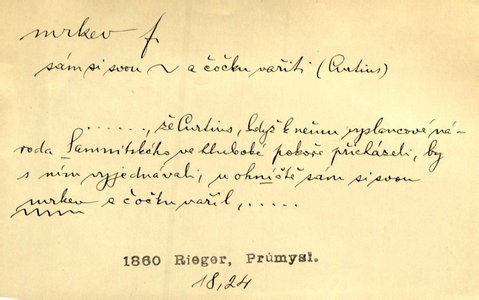 mrkev f.
sám si svou ~ a čočku vařiti (Curtius)
......, že Curtius, když k němu vyslancové ná-
roda Samnitského ve hluboké pokoře přicházeli, by
s ním vyjednávali, u ohniště sám si svou
mrkev a čočku vařil, .....
1860 Rieger, Průmysl.
18,24